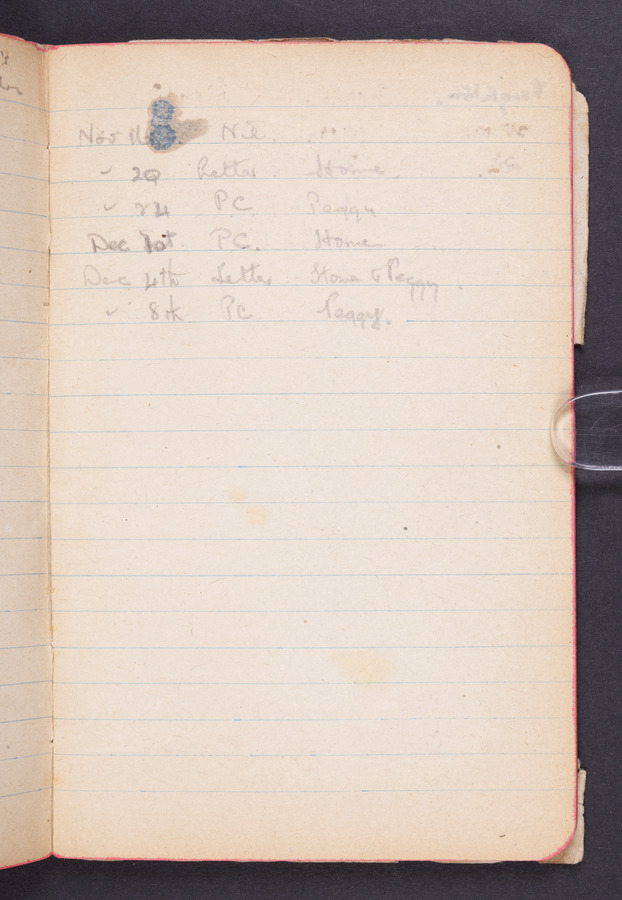 Nov Nil "
" 20 Letter Home.
" 24 PC Peggy
Dec 1st. PC. Home
Dec 4th Letter Home & Peggy.
" 8th PC Peggy.